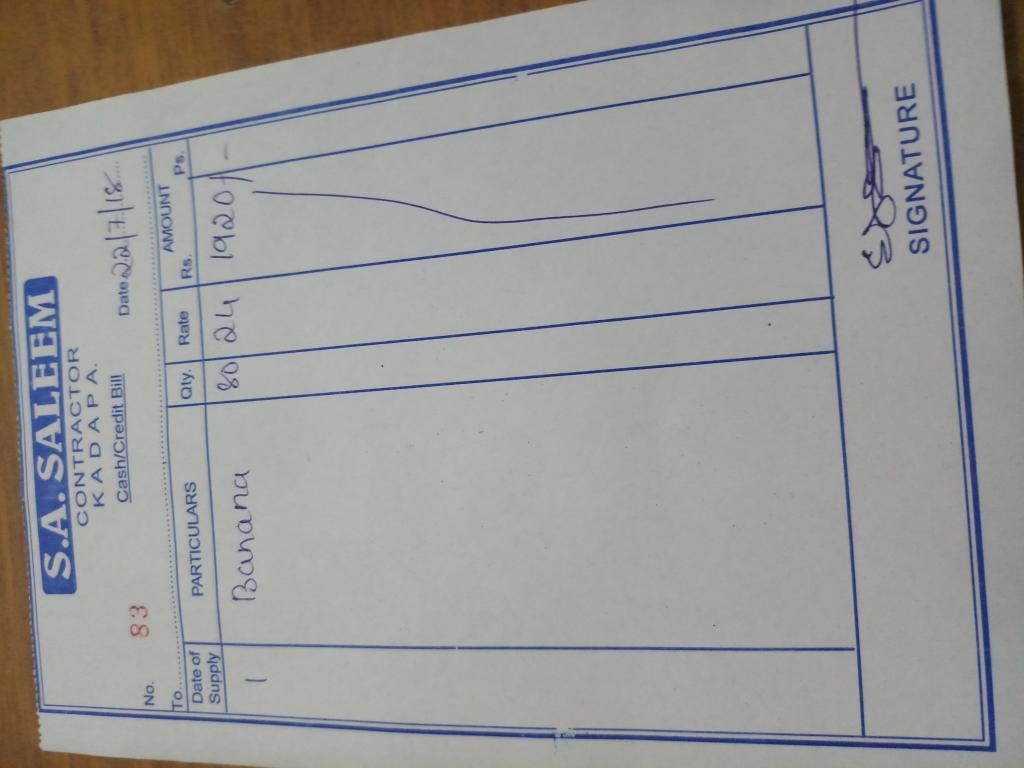 S.A.SALEEM
CONTRACTOR
KADAPA.
Cash/Credit Bill
No. 83 Date 22/7/18
To
Date of Supply PARTICULARS Qty. Rate AMOUNT Rs. Ps.
1 Banana 80 24 1920/-
SIGNATURE